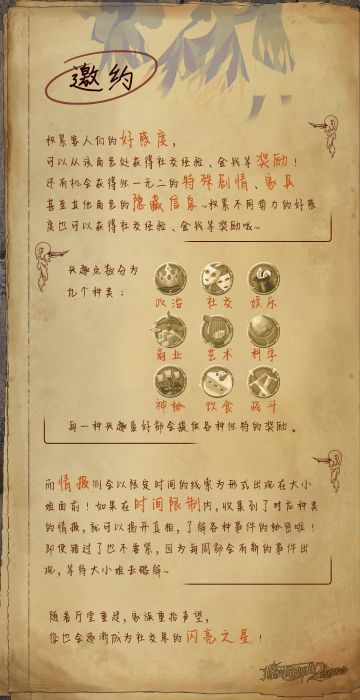 邀约
积累客人们的好感度，
可以从该角色处获得社交经验、金钱等奖励！
还有机会获得独一无二的特殊剧情、家具
甚至其他角色的隐藏信息~积累不同势力的好感
度也可以获得社交经验、金钱等奖励哦~
兴趣点数分为
九个种类：
政治 社交 娱乐
商业 艺术 科学
神秘 饮食 战斗
每一种兴趣喜好都会提供各种独特的奖励。
而情报则会以限定时间的线索为形式出现在大小
姐面前！如果在时间限制内，收集到了对应种类
的情报，就可以揭开真相，了解各种事件的秘密啦！
即使错过了也不要紧，因为每周都会有新的事件出
现，等待大小姐去破解~
随着厅堂重建，家族重拾声望，
您也会逐渐成为社交界的闪亮之星！